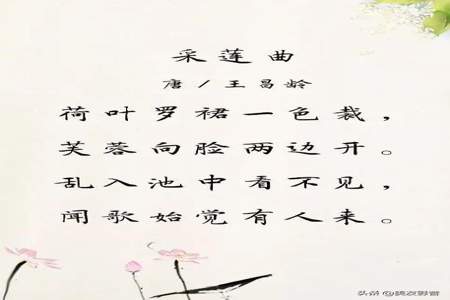 采莲曲
唐/王昌龄
荷叶罗裙一色裁，
芙蓉向脸两边开。
乱入池中看不见，
闻歌始觉有人来。
头条@美友野曾